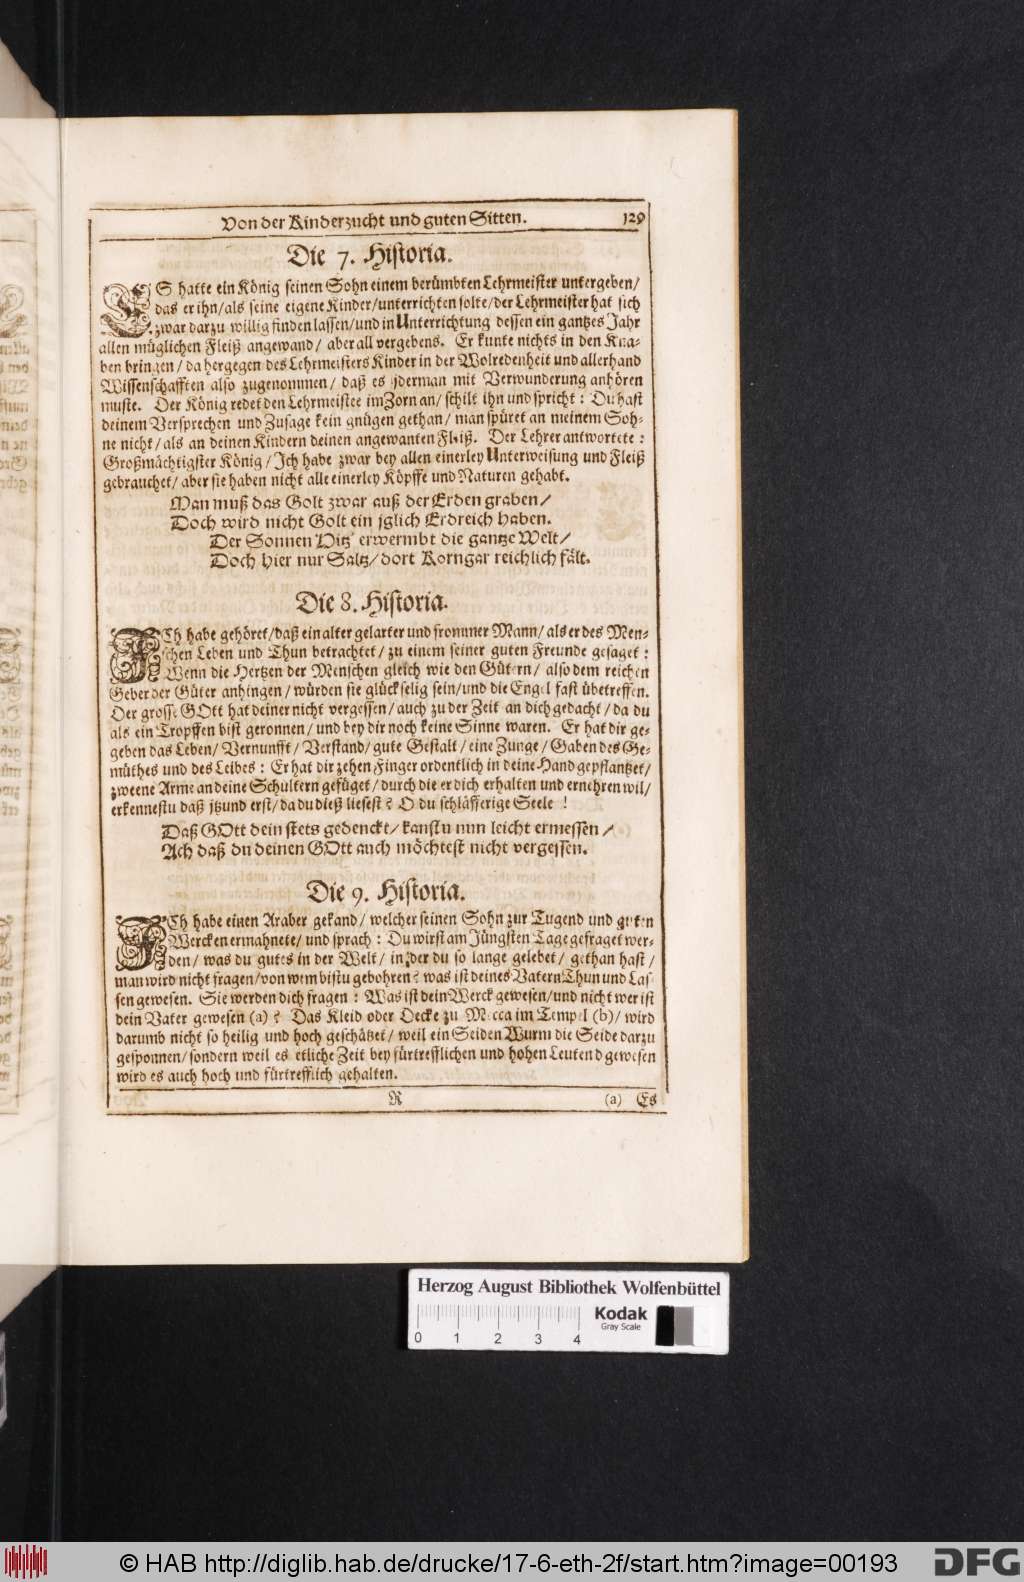 Von der Kinderzucht und guten Sitten. 129
Die 7. Historia.
ES hatte ein König seinen Sohn einem berümbten Lehrmeister untergeben/
das er ihn/als seine eigene Kinder/unterrichten solte/der Lehrmeister hat sich
zwar darzu willig finden lassen/und in Unterrichtung dessen ein gantzes Jahr
allen müglichen Fleiß angewand/ aber all vergebens. Er kunte nichts in den Kna-
ben bringen/da hergegen des Lehrmeisters Kinder in der Wolredenheit und allerhand
Wissenschafften also zugenommen/ daß es jderman mit Verwunderung anhören
muste. Der König redet den Lehrmeister im Zorn an/ schilt ihn und spricht: Du hast
deinem Versprechen und Zusage kein gnügen gethan/ man spüret an meinem Soh-
ne nicht/als an deinen Kindern deinen angewanten Fleiß. Der Lehrer antwortete:
Großmächtigster König/Ich habe zwar bey allen einerley Unterweisung und Fleiß
gebrauchet/ aber sie haben nicht alle einerley Köpffe und Naturen gehabt.
Man muß das Golt zwar auß der Erden graben/
Doch wird nicht Golt ein jglich Erdreich haben.
Der Sonnen Hitz' erwermbt die gantze Welt/
Doch hier nur Saltz/dort Korngar reichlich fält.
Die 8. Historia.
ICh habe gehöret/daß ein alter gelarter und frommer Mann/ als er des Men-
schen Leben und Thun betrachtet/ zu einem seiner guten Freunde gesaget:
Wenn die Hertzen der Menschen gleich wie den Gütern/ also dem reichen
Geber der Güter anhingen/ würden sie glückselig sein/und die Engel fast übetreffen.
Der grosse GOtt hat deiner nicht vergessen/ auch zu der Zeit an dich gedacht/da du
als ein Tropffen bist geronnen/ und bey dir noch keine Sinne waren. Er hat dir ge-
geben das Leben/ Vernunfft/ Verstand/ gute Gestalt/eine Zunge/Gaben des Ge-
müthes und des Leibes: Er hat dir zehen Finger ordentlich in deine Hand gepflantzet/
zweene Arme an deine Schultern gefüget/durch die er dich erhalten und ernehren wil/
erkennestu daß jtzund erst/da du dieß liesest? O du schläfferige Seele!
Daß GOtt dein stets gedenckt/kanstu nun leicht ermessen/
Ach daß du deinen GOtt auch möchtest nicht vergessen.
Die 9. Historia.
ICh habe einen Araber gekand/ welcher seinen Sohn zur Tugend und guten
Wercken ermahnete/ und sprach: Du wirst am Jüngsten Tage gefraget wer-
den/ was du gutes in der Welt/ in der du so lange gelebet/ gethan hast/
man wird nicht fragen/von wem bistu gebohren? was ist deines Vatern Thun und Las-
sen gewesen. Sie werden dich fragen: Was ist dein Werck gewesen/und nicht wer ist
dein Vater gewesen (a)? Das Kleid oder Decke zu Mecca im Tempel (b)/ wird
darumb nicht so heilig und hoch geschätzet/ weil ein Seiden Wurm die Seide darzu
gesponnen/sondern weil es etliche Zeit bey fürtrefflichen und hohen Leuten d gewesen
wird es auch hoch und fürtrefflich gehalten.
R (a) Es
Herzog August Bibliothek Wolfenbüttel
0 1 2 3 4 Kodak
Gray Scale
© HAB http://diglib.hab.de/drucke/17-6-eth-2f/start.htm?image=00193 DFG